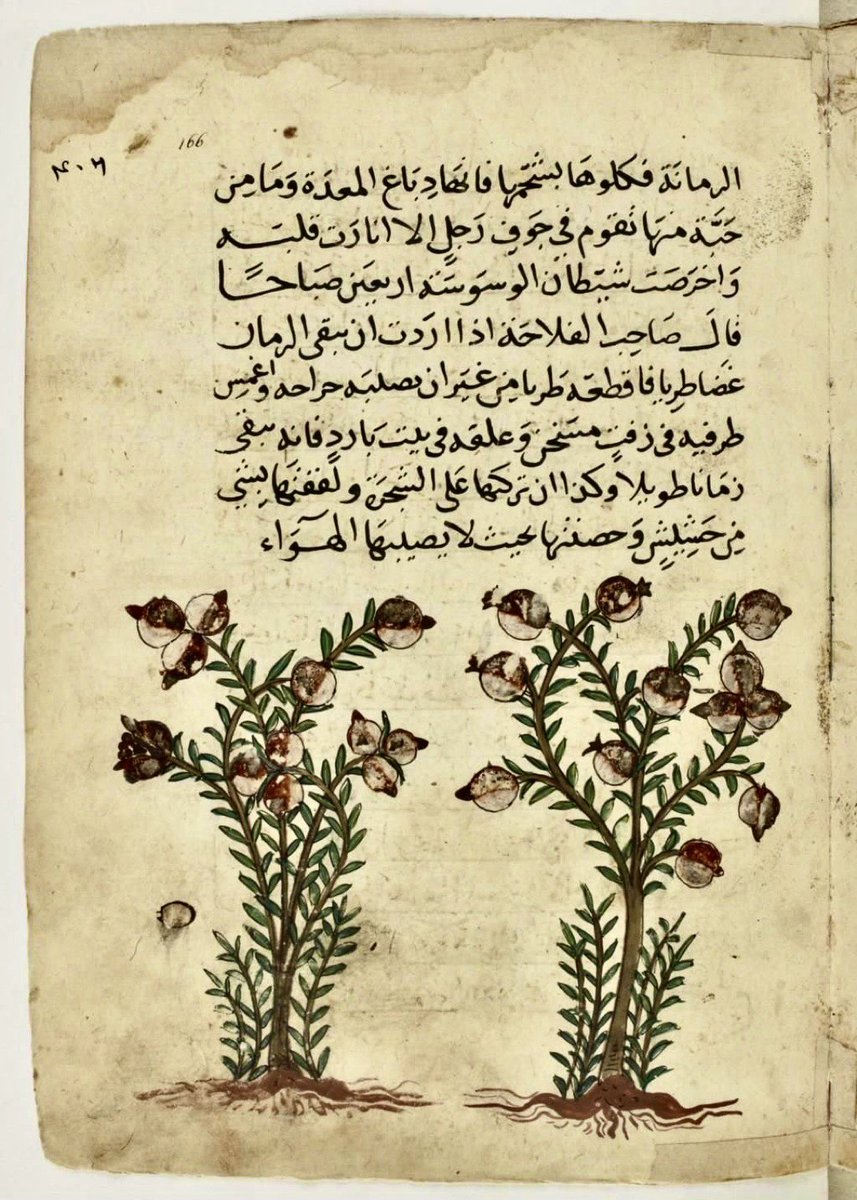 166
٤٠٦
الرمانة فكلوها بشحمها فانها دباغ المعدة وما من
حبة منها تقوم في جوف رجل الا انارت قلبه
واخرصت شيطان الوسوسة اربعين صباحا
قال صاحب الفلاحة اذا اردت ان يبقى الرمان
غضا طريا فاقطعه طريا من غير ان يصلبه جراحه واغمس
طرفيه في زفت مسخن وعلقه في بيت بارد فانه يبقى
زمانا طويلا وكذا ان تركتها على الشجرة ولففتها بشي
من حشيش وحصنتها بحيث لا يصيبها الهوآء